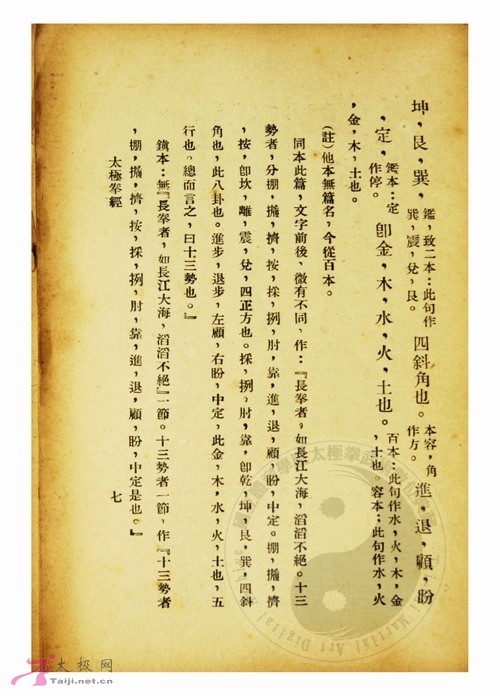 坤，艮，巽，鑑，致二本：此句作巽，震，兌，艮。四斜角也。本容，角作方。進，退，顧，盼
，定，鑑本：定作停。卽金，木，水，火，土也。百本：此句作水，火，木，金，土也。容本：此句作水，火
，金，木，土也。
（註）他本無篇名，今從百本。
同本此篇，文字前後，微有不同，作：『長拳者，如長江大海，滔滔不絕。十三
勢者，分掤，攦，擠，按，採，挒，肘，靠，進，退，顧，盼，中定。掤，攦，擠
，按，卽坎，離，震，兌，四正方也。採，挒，肘，靠，卽乾，坤，艮，巽，四斜
角也，此八卦也。進步，退步，左顧，右盼，中定，此金，木，水，火，土也，五
行也。總而言之，曰十三勢也。』
鎭本：無『長拳者，如長江大海，滔滔不絕』一節。十三勢者一節，作『十三勢者
，掤，攦，擠，按，採，挒，肘，靠，進，退，顧，盼，中定是也。』
太極拳經 七
太极网
Taiji.net.cn